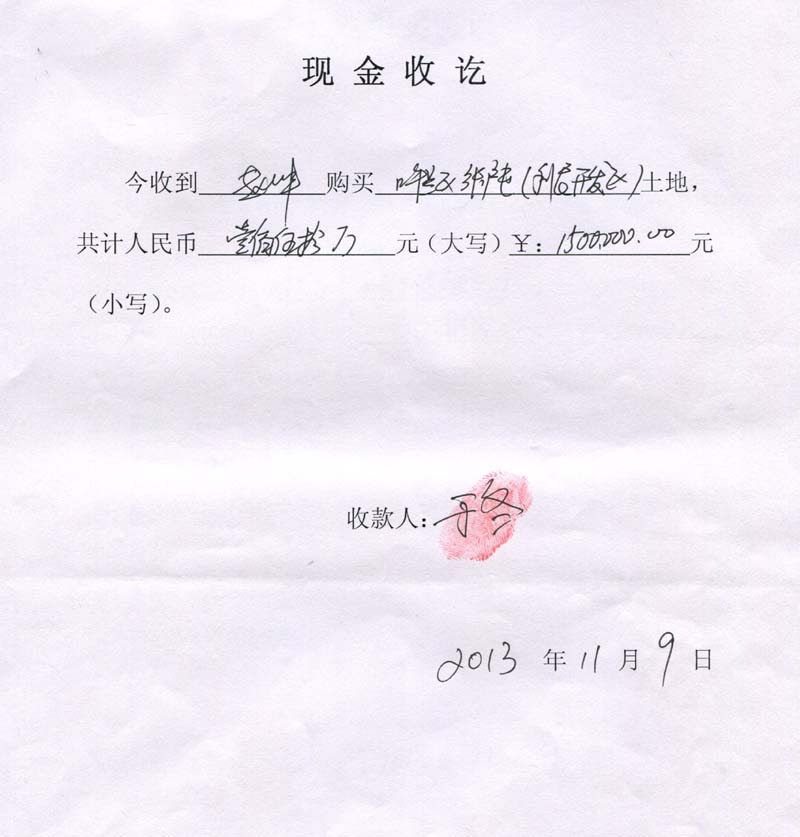 现金收讫
今收到 购买 (利房开发区)土地，
共计人民币 壹佰伍拾万 元（大写）￥：1500,000.00 元
（小写）。
收款人：于冬
2013 年 11 月 9 日